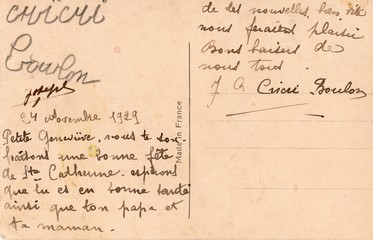 CRiCRi
Boulon
Joseph
24 Novembre 1929
Petite Geneviève, nous te sou-
haitons une bonne fête
de Ste Catherine. espérons
que tu es en bonne santé
ainsi que ton papa et
ta maman.
Made in France
de tes nouvelles bien vite
nous feraient plaisir
Bons baisers de
nous tous.
J A Cricri Boulon